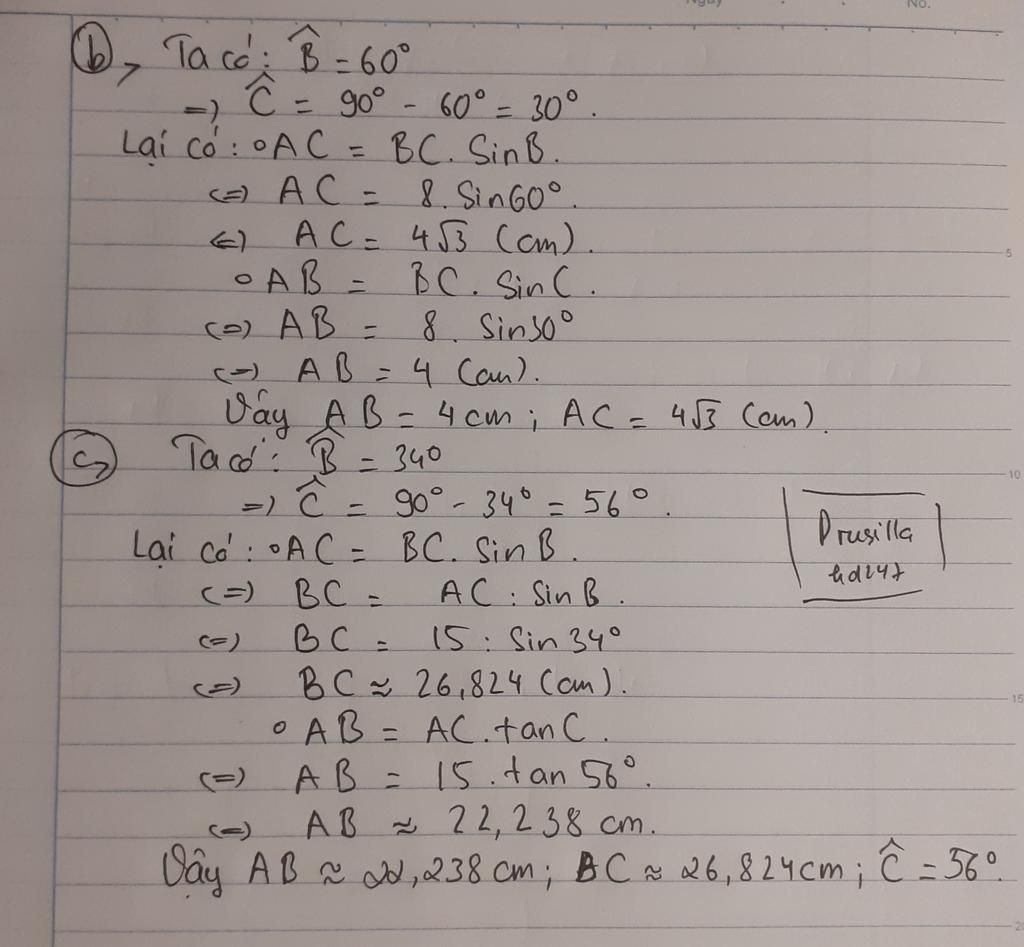 Ngày No.
b, Ta có: B̂ = 60°
=> Ĉ = 90° - 60° = 30°.
Lại có: ∘AC = BC. SinB.
<=> AC = 8. Sin60°.
<=> AC = 4√3 (cm).
∘ AB = BC. SinC.
<=> AB = 8. Sin30°
<=> AB = 4 (cm).
Vậy AB = 4cm; AC = 4√3 (cm).
c, Ta có: B̂ = 34°
=> Ĉ = 90° - 34° = 56°.
Lại có: ∘AC = BC. SinB.
<=> BC = AC : SinB.
<=> BC = 15 : Sin 34°
<=> BC ≈ 26,824 (cm).
∘ AB = AC. tanC.
<=> AB = 15. tan 56°.
<=> AB ≈ 22,238 cm.
Vậy AB ≈ 22,238 cm; BC ≈ 26,824cm; Ĉ = 56°.
Drusilla
hd247
5
10
15
20